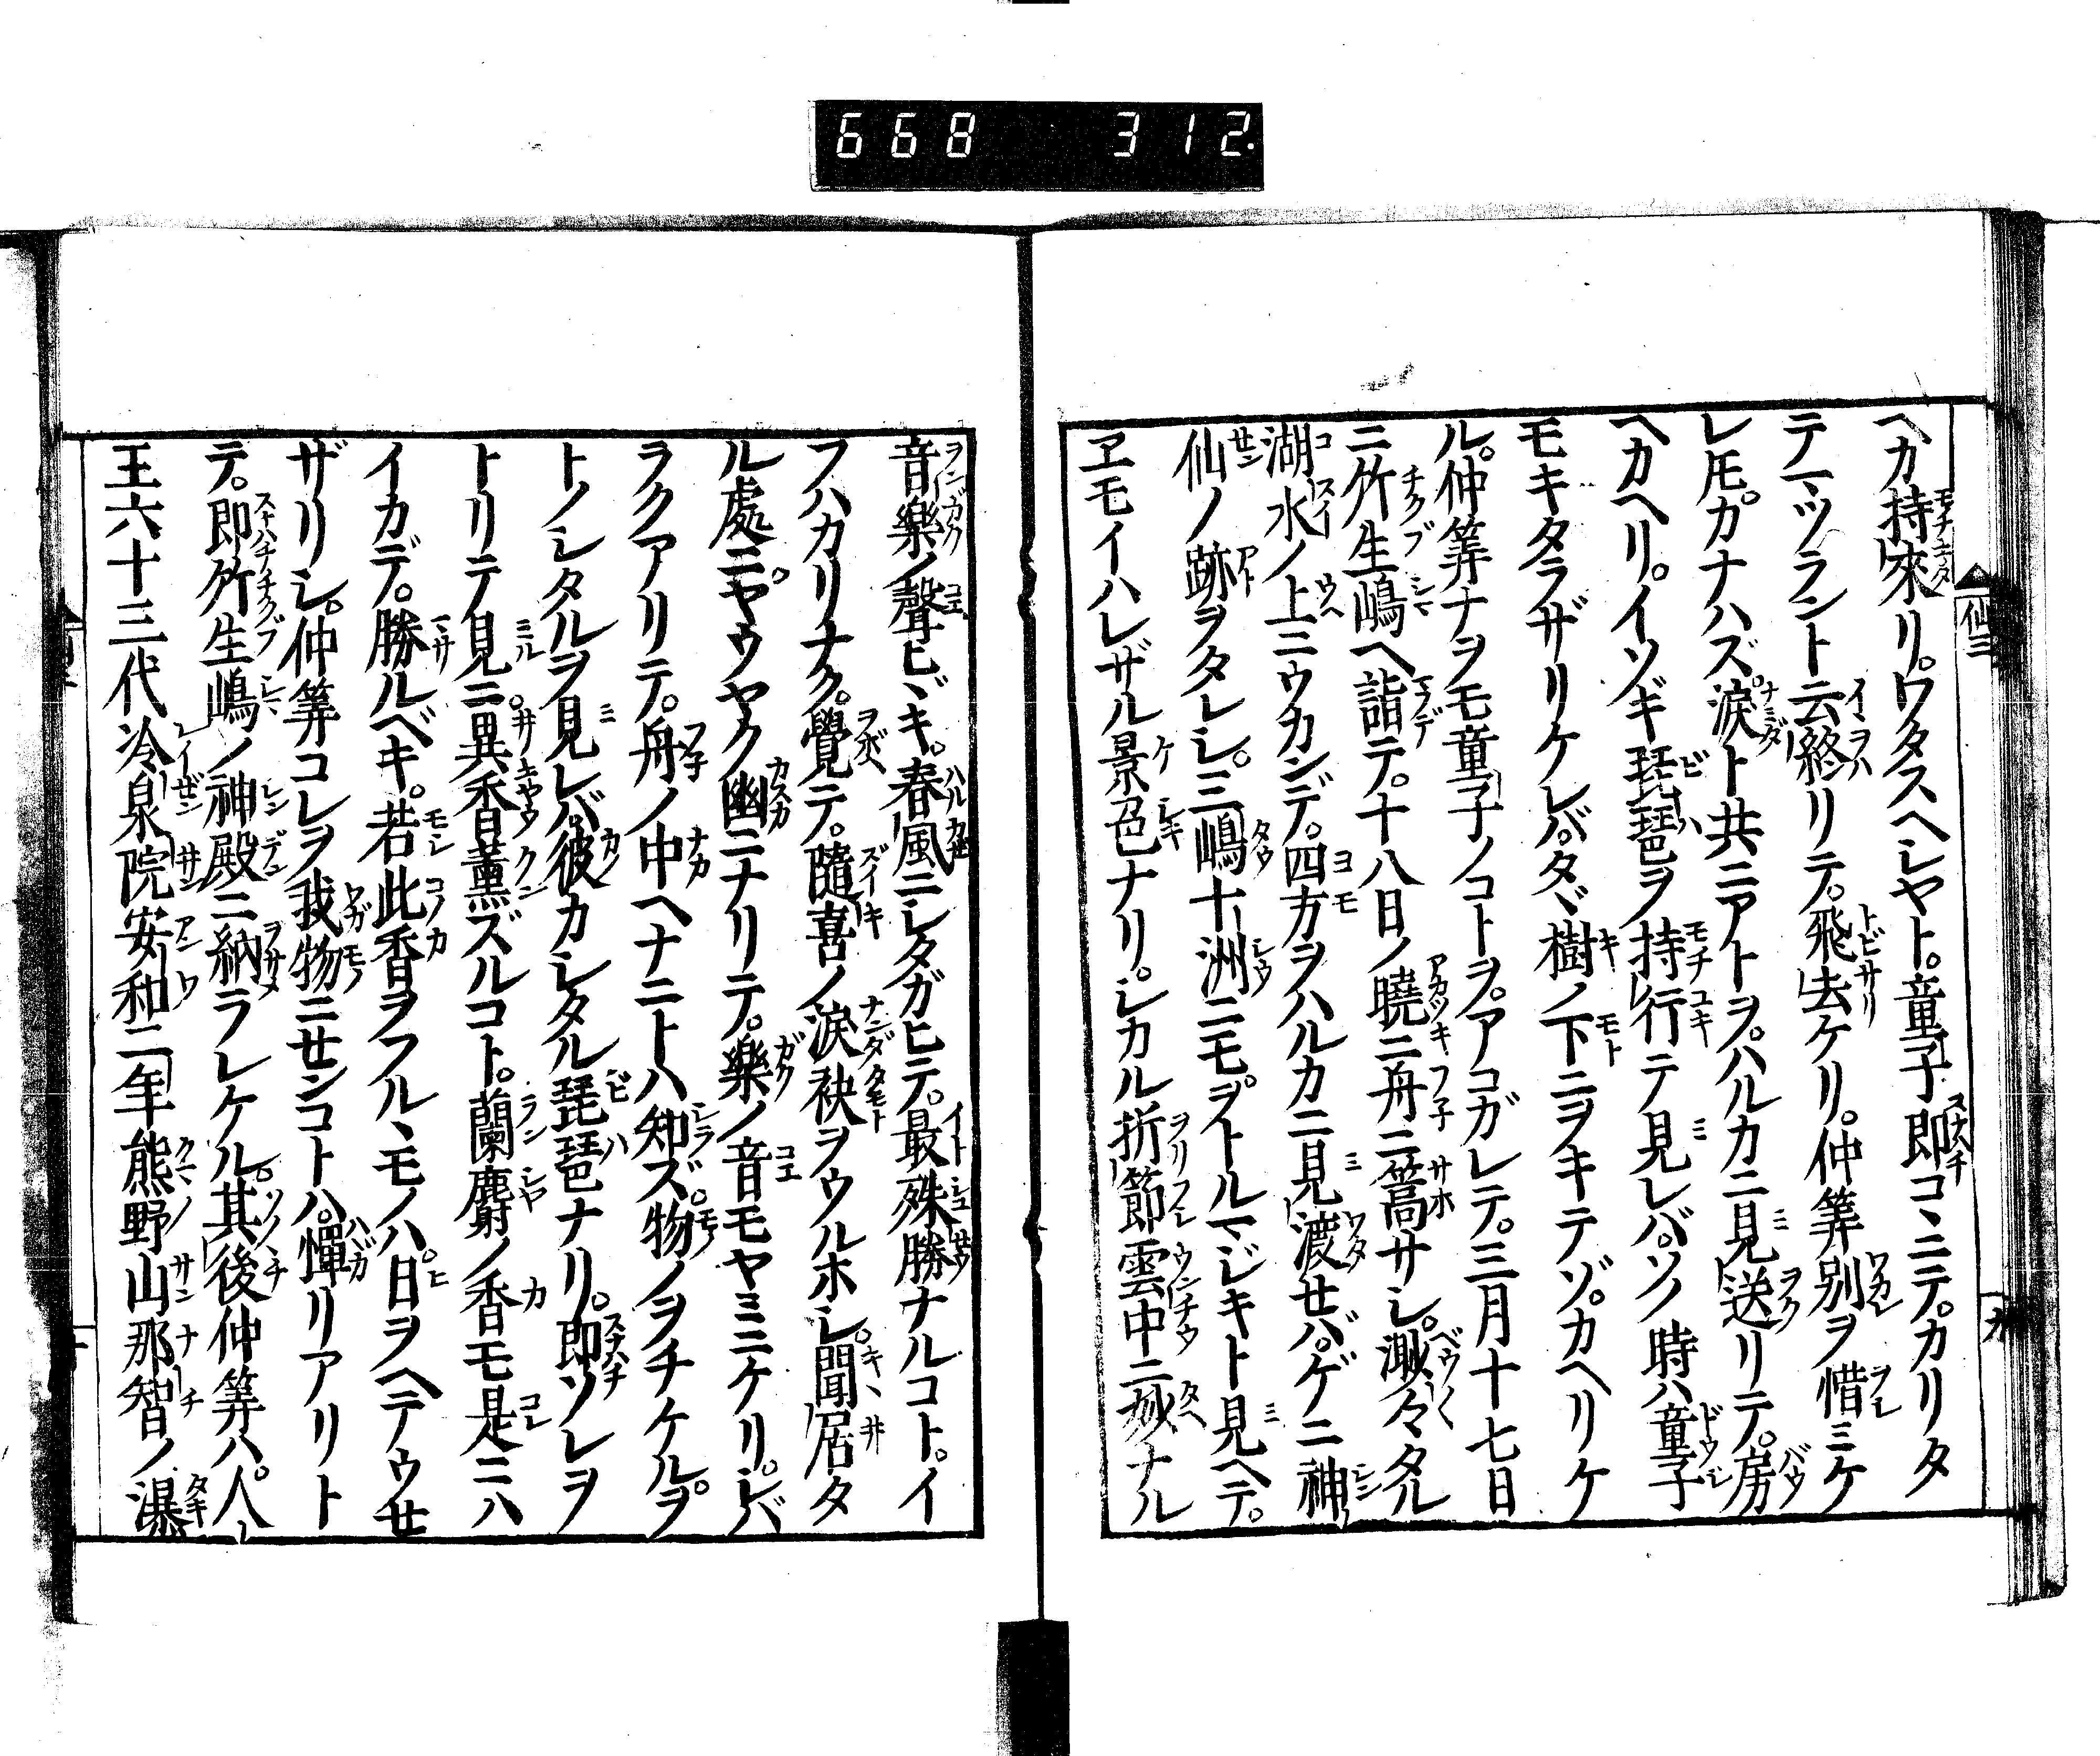 668 312
ヘカ持來リ。ワタスヘシヤト。童子即コヽニテ。カリタ
テマツラント云終リテ。飛去ケリ。仲筭別ヲ惜ミケ
レ𪜈。カナハズ。淚ト共ニアトヲ。ハルカニ見送リテ。房
ヘカヘリ。イソギ琵琶ヲ持行テ見レバ。ソノ時ハ童子
モキタラザリケレバ。タヾ樹ノ下ニヲキテゾ。カヘリケ
ル。仲筭ナヲモ童子ノコトヲ。アコガレテ。三月十七日
ニ竹生嶋ヘ詣テ。十八日ノ曉ニ舟ニ篙サシ。渺々タル
湖水ノ上ニウカンデ。四方ヲハルカニ見渡セバ。ゲニ神
仙ノ跡ヲタレシ。三嶋十洲ニモ。ヲトルマジキト見ヘテ。
ヱモイハレザル景色ナリ。シカル折節雲中ニ妙ナル
音樂ノ聲ヒヾキ。春風ニシタガヒテ。最殊勝ナルコト。イ
フハカリナク。覺テ。隨喜ノ淚袂ヲウルホシ。聞居タ
ル處ニ。ヤウヤク幽ニナリテ。樂ノ音モヤミニケリ。シバ
ラクアリテ。舟ノ中ヘナニトハ知ズ。物ノヲチケル。ヲ
トノシタルヲ見レバ。彼カシタル琵琶ナリ。即ソレヲ
トリテ見ニ。異香薰ズルコト。蘭麝ノ香モ是ニハ
イカデ。勝ルベキ。若此香ヲフルヽモノハ。日ヲヘテウセ
ザリシ。仲筭コレヲ我物ニセンコトハ。憚リアリト
テ。即竹生嶋ノ神殿ニ納ラレケル。其後仲筭ハ。人
王六十三代冷泉院安和二年熊野山那智ノ瀑